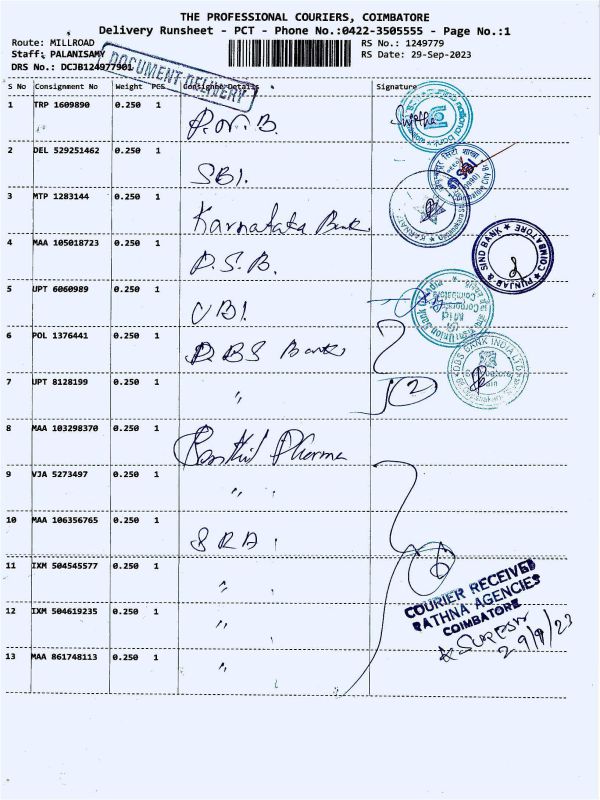 THE PROFESSIONAL COURIERS, COIMBATORE
Delivery Runsheet - PCT - Phone No.:0422-3505555 - Page No.:1
Route: MILLROAD RS No.: 1249779
Staff: PALANISAMY RS Date: 29-Sep-2023
DRS No.: DCJB124977901
DOCUMENT DELIVERY
S No Consignment No Weight PCS Consignee Details Signature
1 TRP 1609890 0.250 1 P.N.B. Sujatha
2 DEL 529251462 0.250 1 SBI.
3 MTP 1283144 0.250 1 Karnataka Bank
4 MAA 105018723 0.250 1 P.S.B.
PUNJAB & SIND BANK ★ COIMBATORE ★
5 UPT 6060989 0.250 1 UBI.
Union Bank
Mid Corporate
Coimbatore
6 POL 1376441 0.250 1 DBS Bank
DBS BANK INDIA LTD
7 UPT 8128199 0.250 1 " 2
8 MAA 103298370 0.250 1 Pharma
9 VJA 5273497 0.250 1 "
10 MAA 106356765 0.250 1 S R A
11 IXM 504545577 0.250 1 "
12 IXM 504619235 0.250 1 "
13 MAA 861748113 0.250 1 "
6
COURIER RECEIVED
RATHNA AGENCIES
COIMBATORE
SURESH
29/9/23